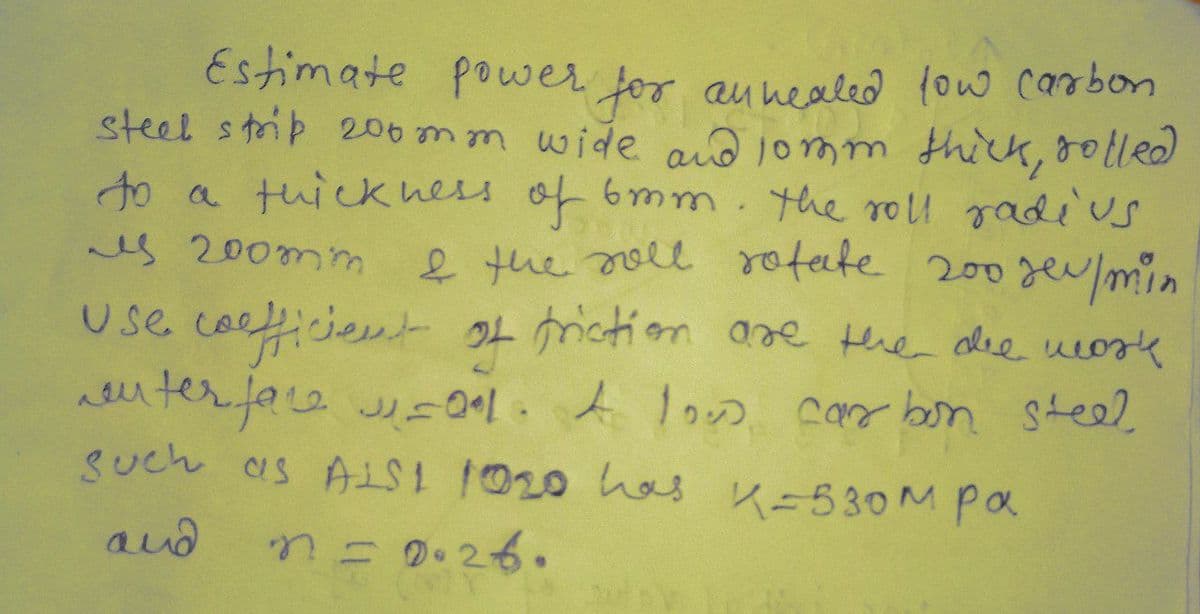 Estimate power for annealed low carbon
steel strip 200 mm wide and 10mm thick, rolled
to a thickness of 6mm. the roll radius
is 200mm & the roll rotate 200 rev/min
Use coefficient of friction are the die work
interface μ=0.1. A low carbon steel
such as AISI 1020 has K=530MPa
and n = 0.26.